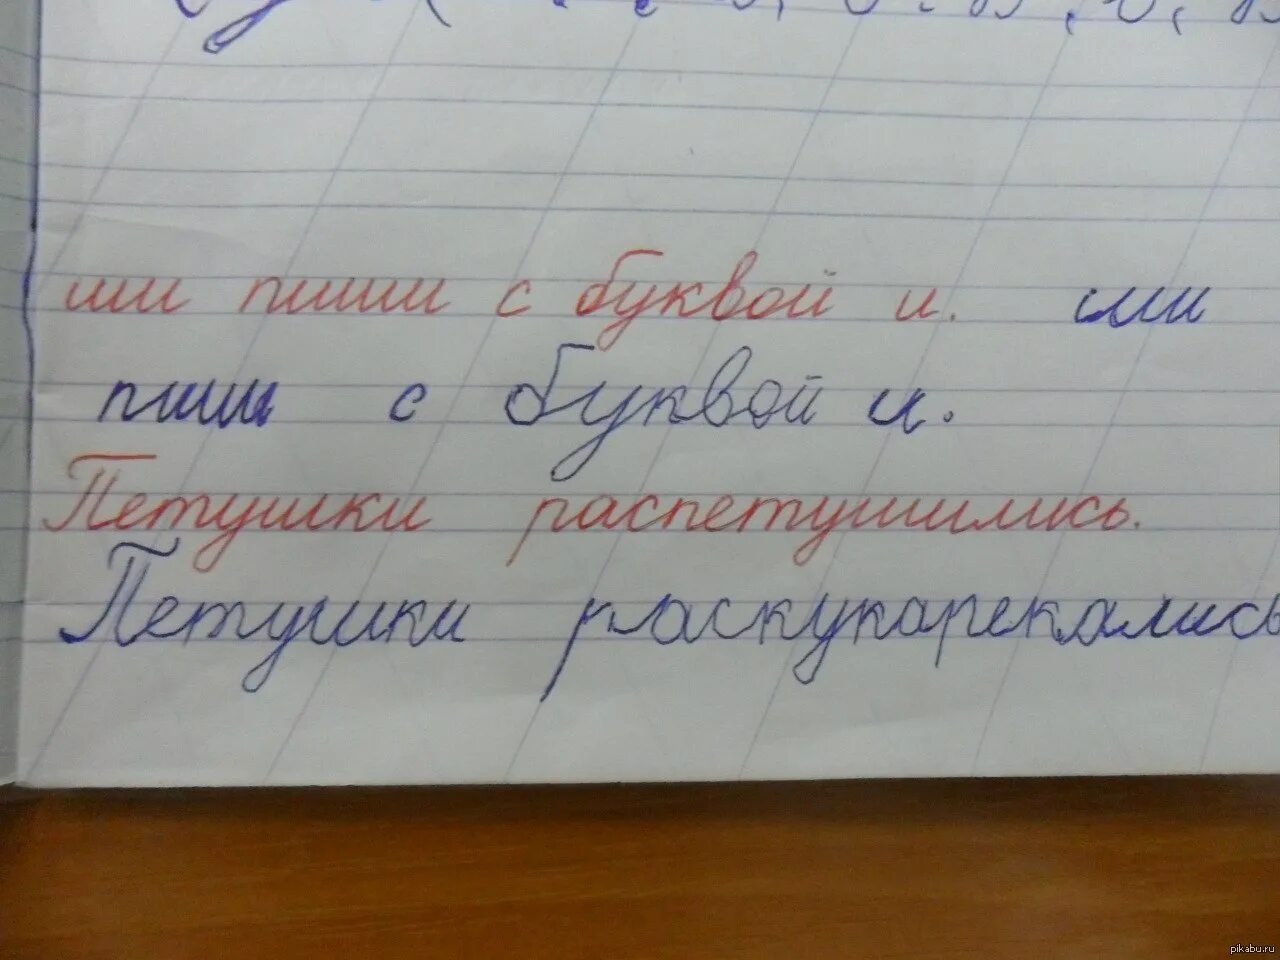 ши пиши с буквой и. ши
пиши с буквой и.
Петушки распетушились.
Петушки раскукарекались
pikabu.ru